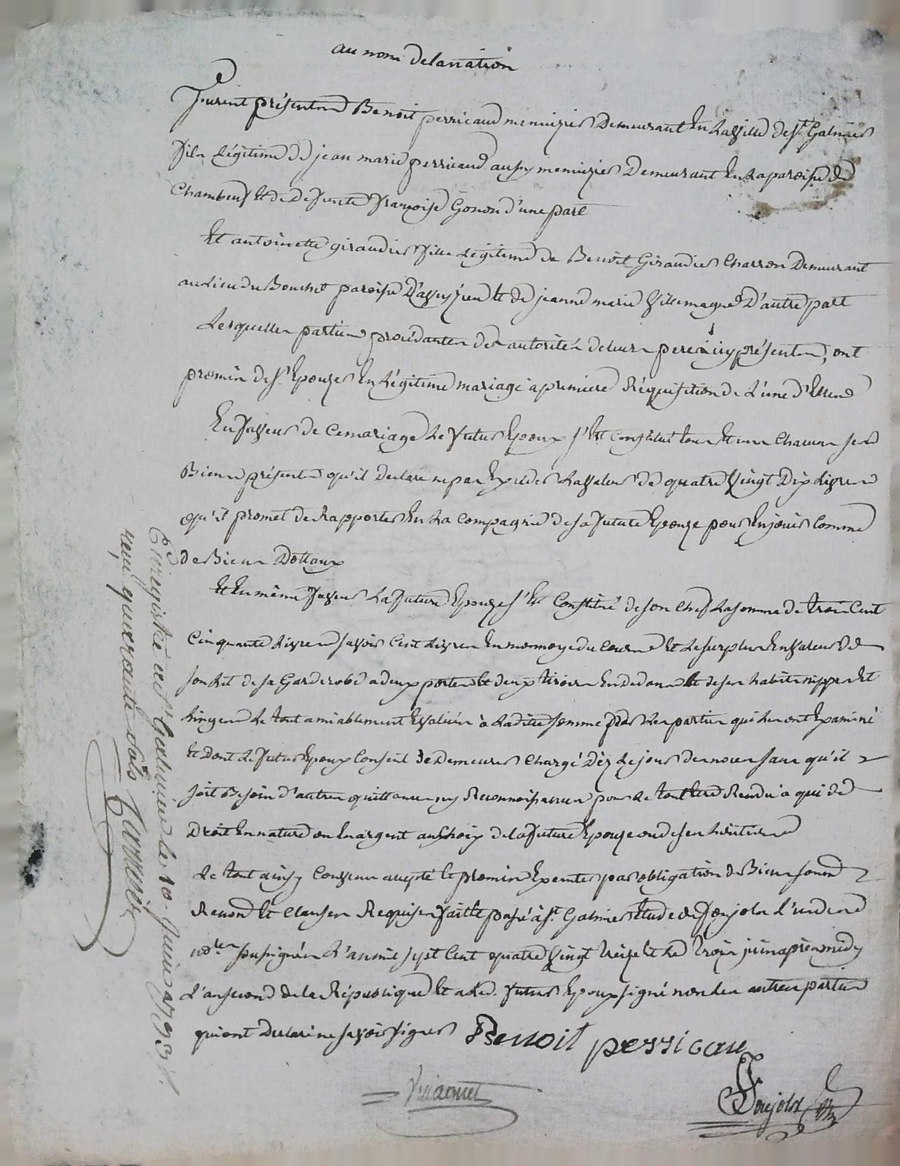 au nom de la nation
furent présents Benoit perricaud menuizier Demeurant En La Ville de St Galmier
fils Légitime de jean marie perricaud aussy menuizier Demeurant En La paroisse de
Chambeuf Et de Defunte françoise Gonon d'une part
Et antoinette giraudier fille Légitime de Benoit Giraudier Charron Demeurant
au lieu du Bouchet paroisse et de jeanne marie Villemagne D'autre part
Lesquelles parties procédantes des autorités de leurs peres icy présents, ont
promis de s'Epouzer En Légitime mariage a premiere Réquisition de L'une d'Elles
En faveur de Ce mariage Le futur Epoux s'Est Constitué tous Et uns Chacuns ses
Biens présents qu'il Declare ne pas Exceder La Valeur de quatre Vingt Dix Livres
qu'il promet de Rapporter En La Compagnie de sa future Epouze pour En jouir Comme
de Biens Dottaux
Et En même faveur La future Epouze s'Est Constitué de son Chef La somme de trois Cent
Cinquante Livres savoir Cent Livres En monnoye du Cours Et Le surplus En Valeur de
son Lit de sa Garderobe a deux portes Et deux tiroirs En dedans Et de ses habits nippes Et
linges Le tout amiablement Evalué à La ditte somme par Les parties qui Les ont Examiné
Et Dont Le futur Epoux Consent De Demeurer Chargé Dèz Le jour des noces sans qu'il
soit Besoin d'autres quittances ny Reconnoissances pour Le tout Etre Rendu a qui de
Droit En nature ou En argent au Choix de La future Epouze ou de ses héritiers
Le tout ainsy Convenu accepté Et promis Executer par obligation de Biens soum
Renon Et Clauses Requises faitte passé à St Galmier Etude de Soujolx L'un des
notres soussignés L'an mil sept Cent quatre Vingt treize Et Le trois juin apres midy
L'an second de La République Et a Led. futur Epoux signé non Les autres parties
qui ont Declaré ne savoir signer Benoit perricau
Soujolx
Enregistré a St Galmier le 10 Juin 1793
reçu quarante sols